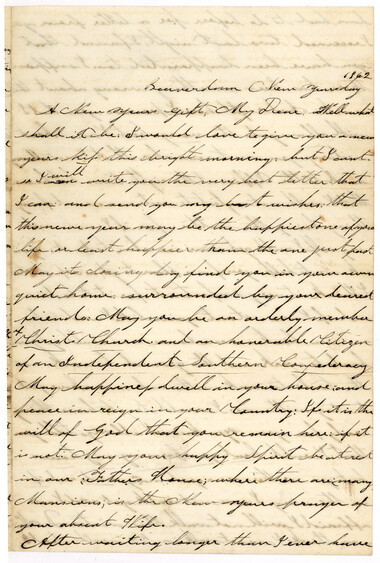 1862
Beaverdam New yearsday
A New years gift, My Dear, Well what
shall it be, I would love to give you a new
years kiss this bright morning, but I cant.
so I will write you the very best letter that
I can and send you my best wishes, that
this new year may be the happiest one of your
life or least happier than the one just past
May its closing day find you in your own
quiet home surrounded by your dearest
friends. May you be an orderly member
of Christs Church and an honorable Citizen
of an Independent Southern Confederacy
May happiness dwell in your house; and
peace in reign in your Country: If it is the
will of God that you remain here: if it
is not May your happy Spirit be at rest
in our Father House; where there are many
Mansions, is the New years prayer of
your absent Wife.
After waiting longer than I ever have